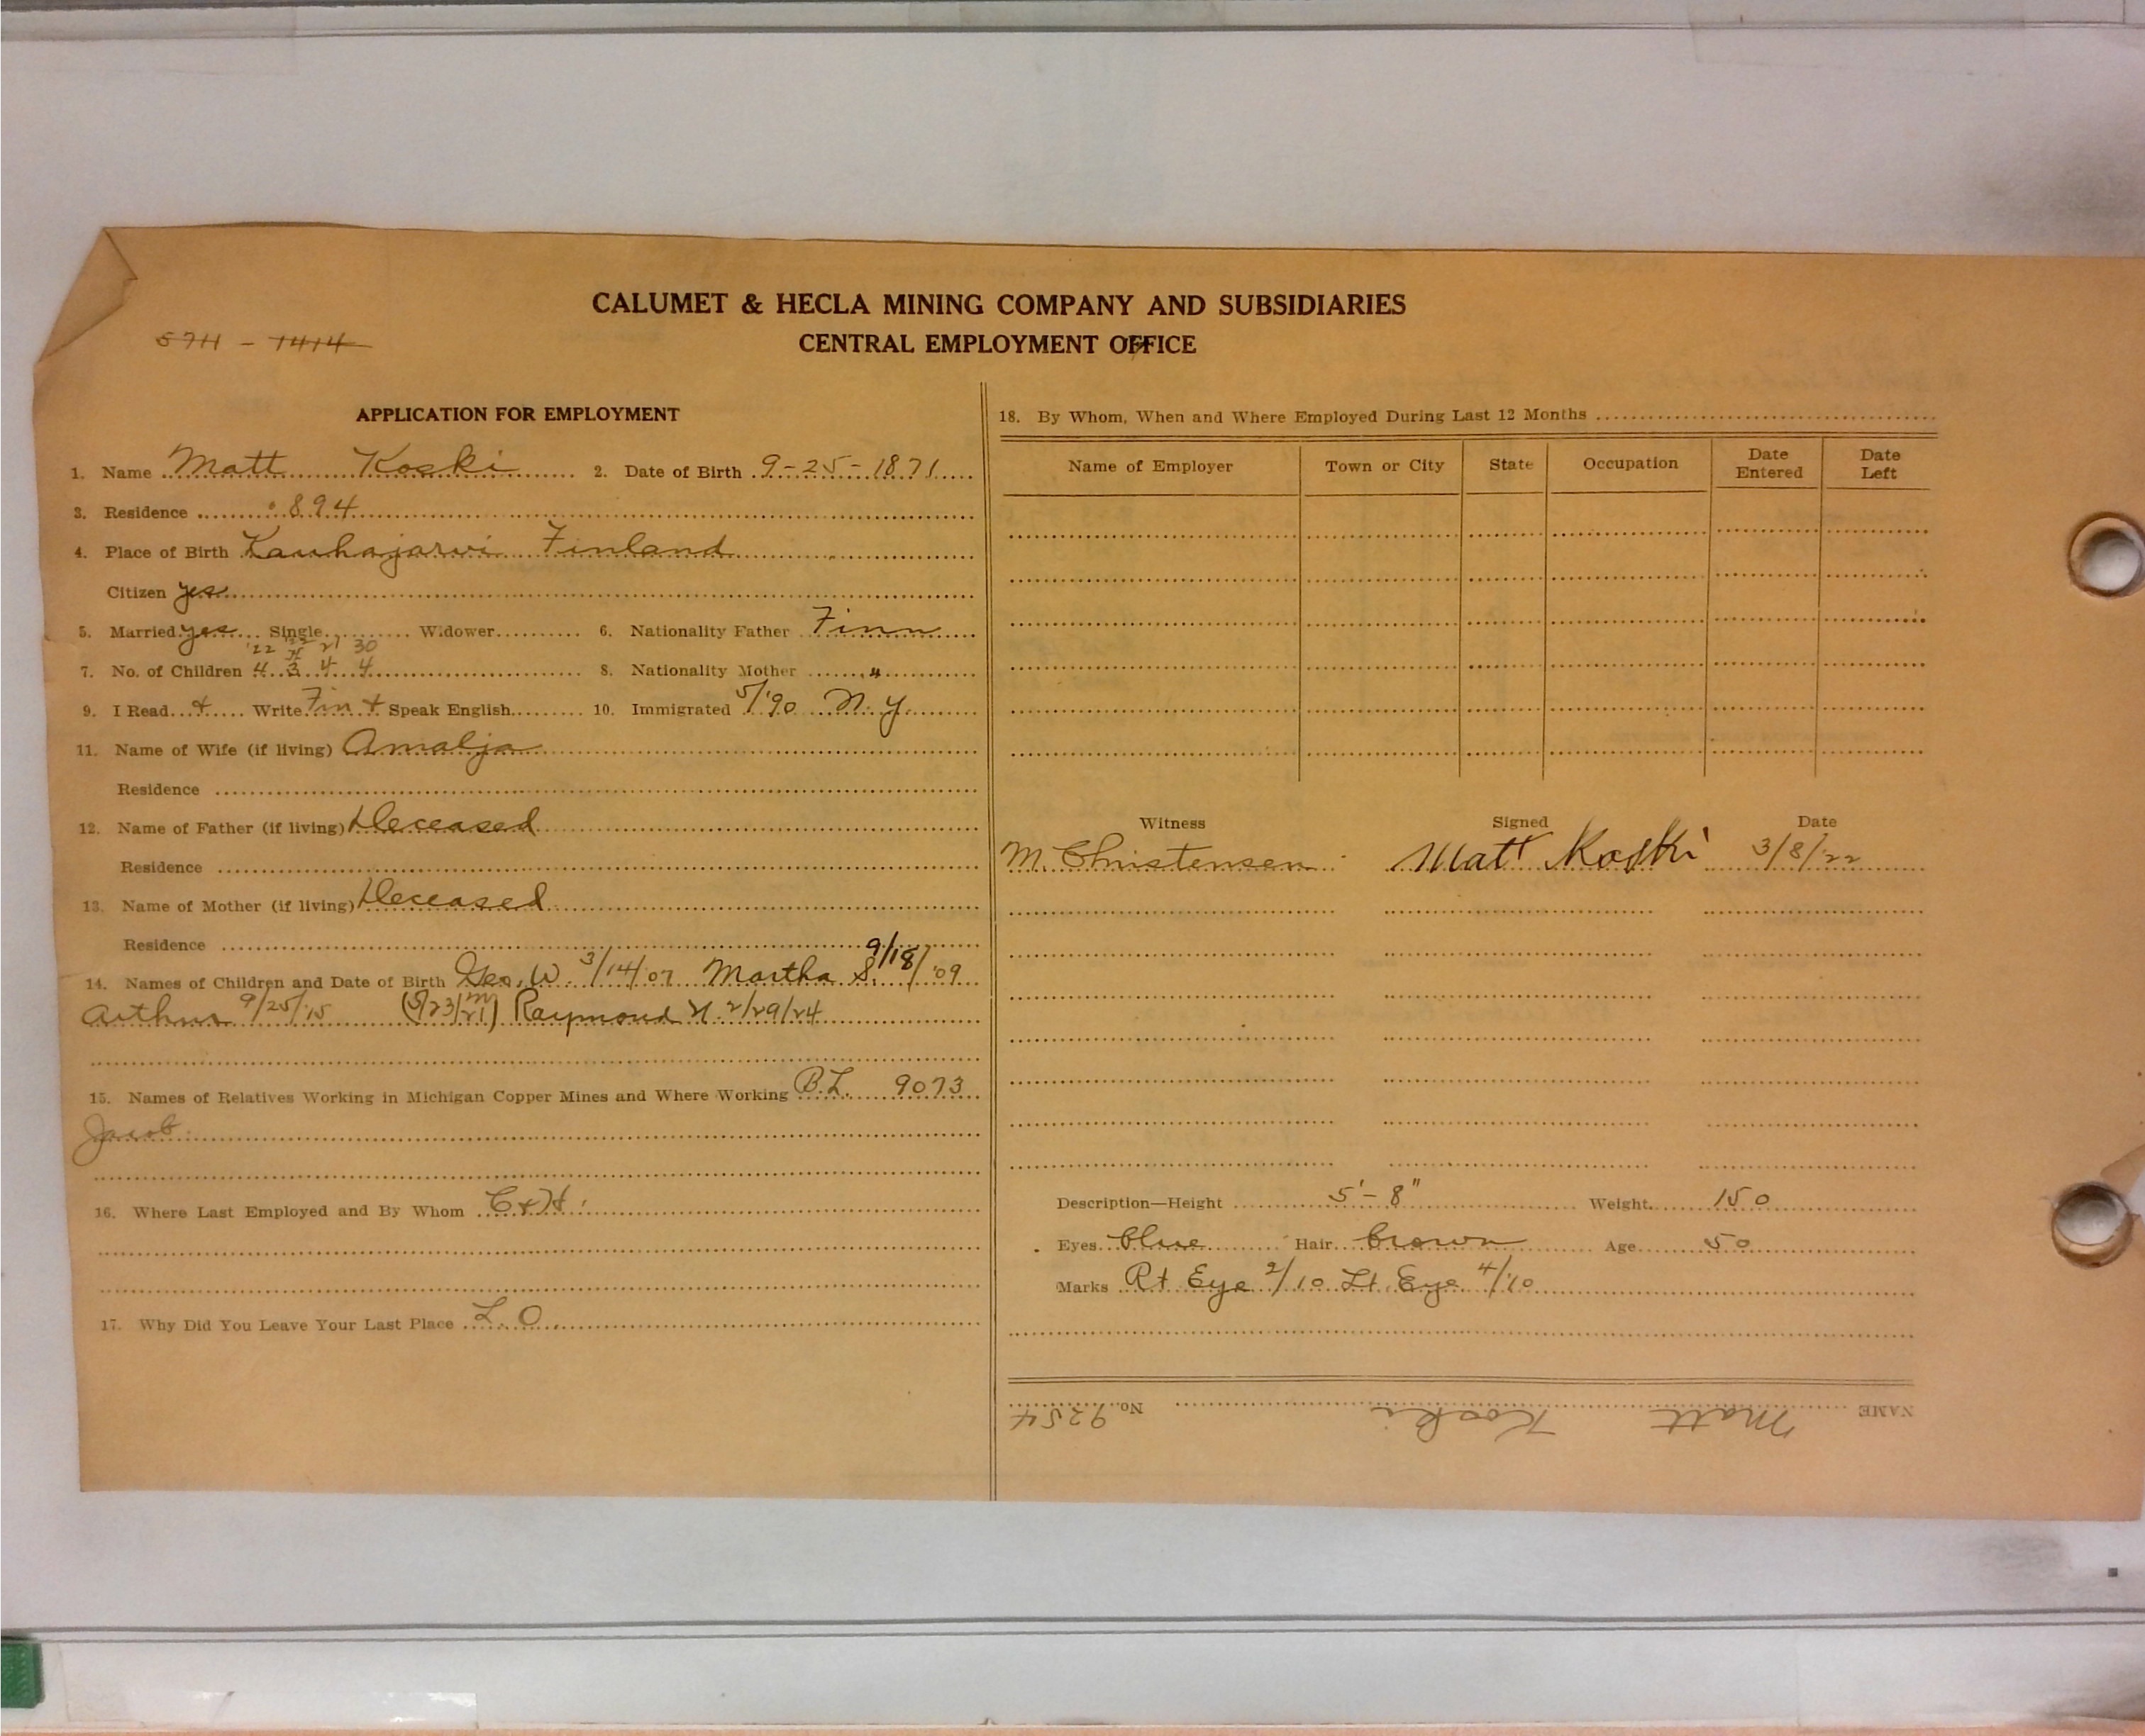 CALUMET & HECLA MINING COMPANY AND SUBSIDIARIES
CENTRAL EMPLOYMENT OFFICE
574 - 1414
APPLICATION FOR EMPLOYMENT
1. Name Matt Koski 2. Date of Birth 9-25-1871
3. Residence 894
4. Place of Birth Kauhajarvi Finland
Citizen yes
5. Married yes Single Widower 6. Nationality Father Finn
'22 21 30
7. No. of Children 4 3 4 4 8. Nationality Mother "
9. I Read & Write Fin + Speak English 10. Immigrated 5/'90 N.Y.
11. Name of Wife (if living) Amalja
Residence
12. Name of Father (if living) Deceased
Residence
13. Name of Mother (if living) Deceased
Residence
14. Names of Children and Date of Birth Geo. W. 3/14/07 Martha S. 9/18/'09
Arthur 9/25/15 Raymond H. 2/29/24
15. Names of Relatives Working in Michigan Copper Mines and Where Working B.L. 9073
Jacob
16. Where Last Employed and By Whom C+H.
17. Why Did You Leave Your Last Place L.O.
18. By Whom, When and Where Employed During Last 12 Months
Name of Employer Town or City State Occupation Date Entered Date Left
Witness Signed Date
M. Christensen Matt Koski 3/8/22
Description—Height 5'-8" Weight 150
Eyes blue Hair brown Age 50
Marks Rt Eye 2/10 Lt. Eye 4/10
NAME Matt Koski No. 9254